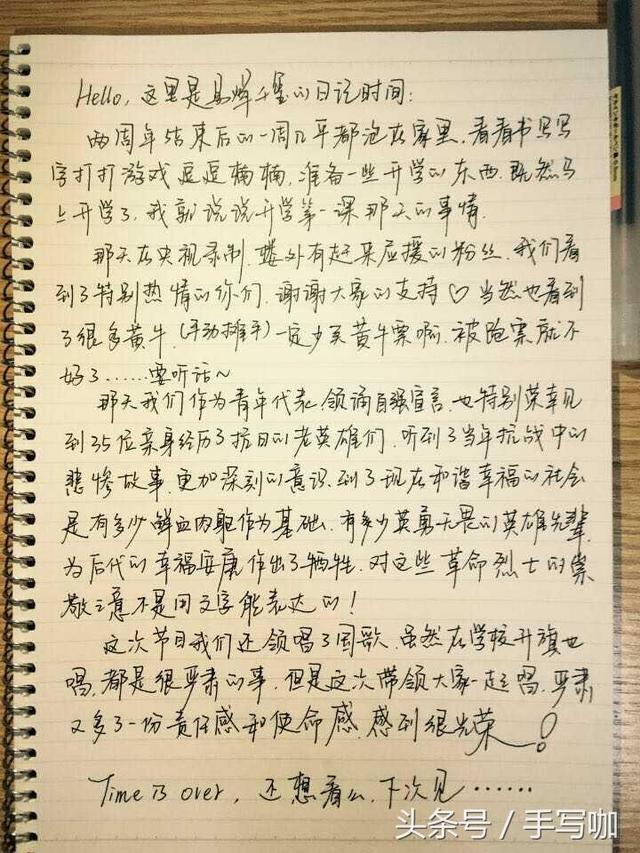 Hello, 这里是易烊千玺的日记时间:
两周年结束后的一周几乎都泡在家里, 看看书写写
字打打游戏逗逗楠楠, 准备一些开学的东西. 既然马
上开学了, 我就说说开学第一课那天的事情.
那天在央视录制, 楼外有赶来应援的粉丝. 我们看
到了特别热情的你们, 谢谢大家的支持♡ 当然也看到
了很多黄牛. (手动摊手) 一定少买黄牛票啊, 被跑票就不
好了……要听话~
那天我们作为青年代表, 领诵自强宣言, 也特别荣幸见
到35位亲身经历了抗日的老英雄们, 听到了当年抗战中的
悲惨故事. 更加深刻的意识到了现在和谐幸福的社会
是有多少鲜血肉躯作为基础, 有多少英勇无畏的英雄先辈
为后代的幸福安康作出了牺牲. 对这些革命烈士的崇
敬之意不是用文字能表达的!
这次节目我们还领唱了国歌. 虽然在学校升旗也
唱, 都是很严肃的事, 但是这次带领大家一起唱, 严肃
又多了一份责任感和使命感, 感到很光荣!
Time is over, 还想看么, 下次见……
头条号 / 手写咖